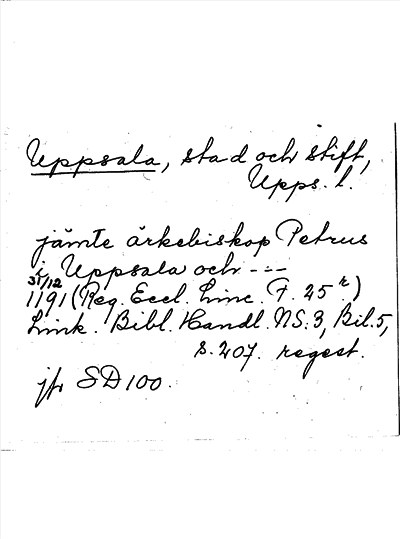 Uppsala, stad och stift,
Upps. l.
jämte ärkebiskop Petrus
i Uppsala och ---
31/12
1191 (Reg. Eccl. Linc. F. 25 r)
Link. Bibl. Handl. NS. 3, Bil. 5,
s. 207. regest.
jfr SD 100.